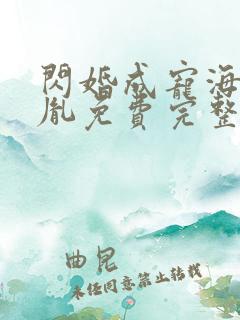 閃婚成寵海
胤免費完整
曲昆
未經同意禁止轉載